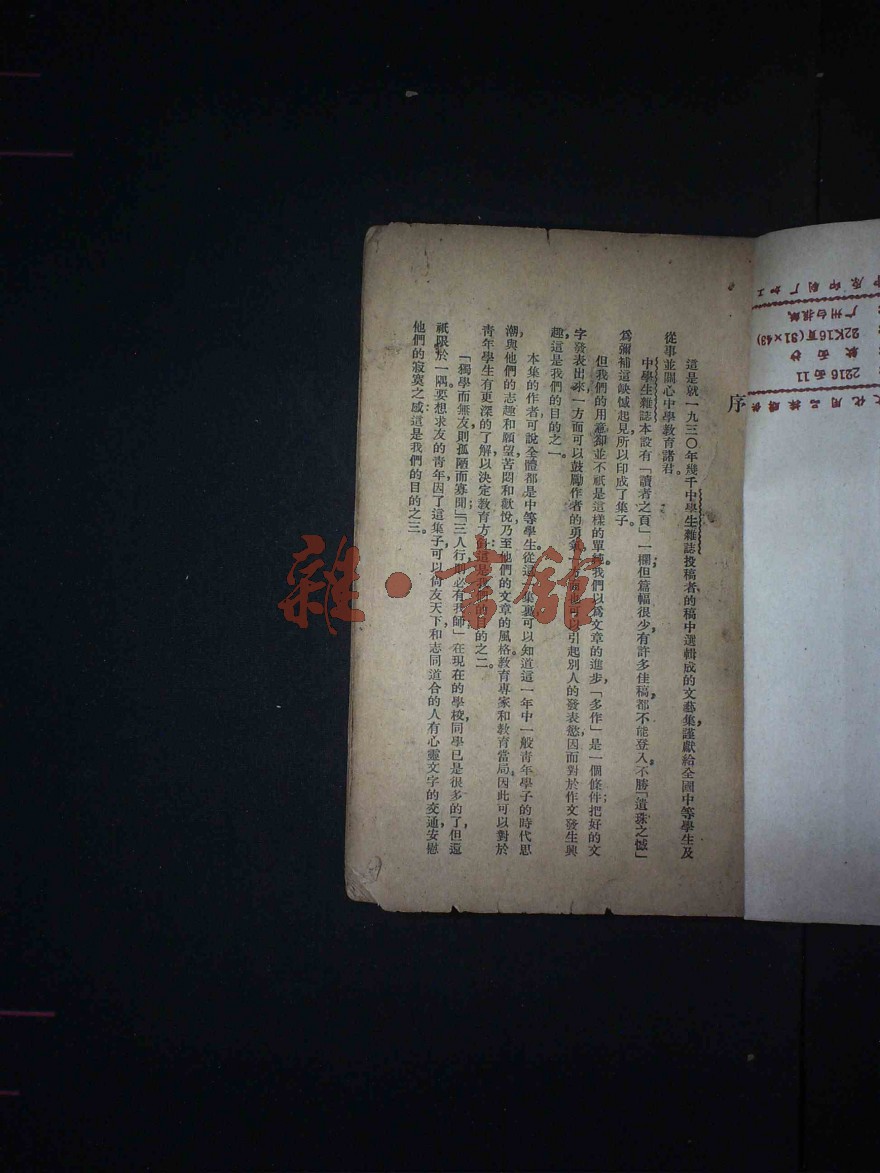 序
這是就一九三〇年幾千中學生雜誌投稿者的稿中選輯成的文藝集，謹獻給全國中等學生及
從事並關心中學教育諸君。
中學生雜誌本設有「讀者之頁」一欄；但篇幅很少，有許多佳稿都不能登入，不勝「遺珠之憾」。
爲彌補這缺憾起見，所以印成了集子。
但我們的用意卻並不祇是這樣的單純。我們以爲文章的進步，「多作」是一個條件；把好的文
字發表出來，一方面可以鼓勵作者的勇氣，一方面也可以引起別人的發表慾，因而對於作文發生興
趣；這是我們的目的之一。
本集的作者可說全體都是中等學生。從這一集裏可以知道這一年中一般靑年學子的時代思
潮與他們的志趣和願望，苦悶和歡悅，乃至他們的文章的風格。教育專家和教育當局，因此可以對於
靑年學生有更深的了解，以決定教育方針：這是我們的目的之二。
「獨學而無友，則孤陋而寡聞」；「三人行，則必有我師」。在現在的學校，同學已是很多的了，但還
祇限於一隅，要想求友的靑年，因了這集子，可以尙友天下，和志同道合的人有心靈文字的交通，安慰
他們的寂寞之感：這是我們的目的之三。
雜·書館
文化用品採購供
2216函11
歎函抄
22K16頁(31×43)
广州白报紙
中原印刷厂加工